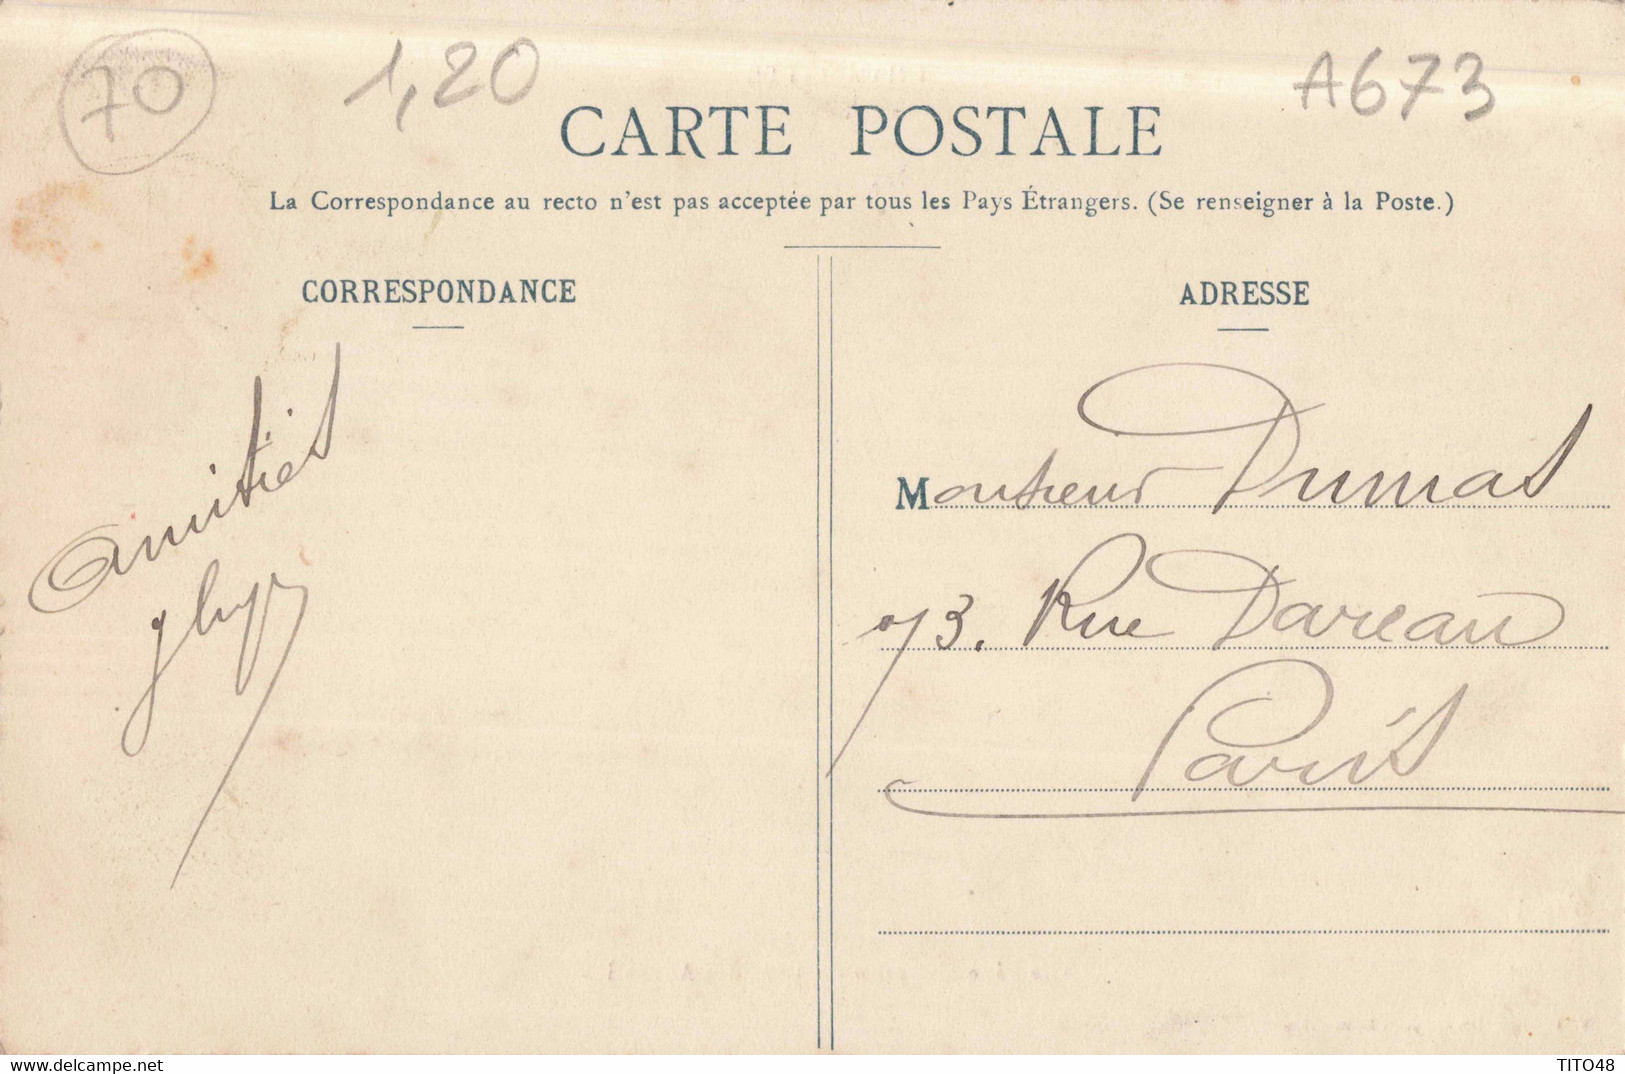 70
1,20
A673
CARTE POSTALE
La Correspondance au recto n'est pas acceptée par tous les Pays Étrangers. (Se renseigner à la Poste.)
CORRESPONDANCE
Amitiés
ADRESSE
Monsieur Dumas
73. Rue Dareau
Paris
TITO48